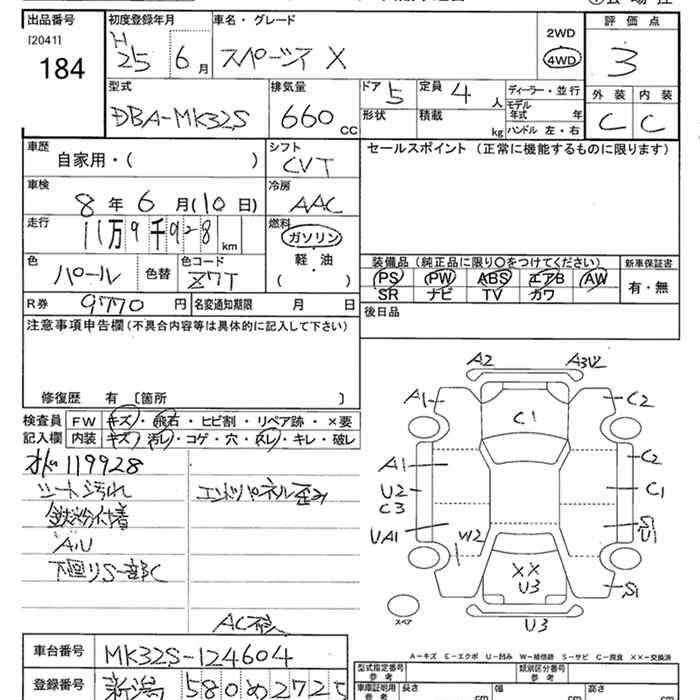 出品番号 初度登録年月 車名・グレード 評価点
[2041] H 25 6月 スペーシア X 2WD 4WD 3
184
型式 排気量 ドア 5 定員 4人 ディーラー・並行 外装 内装
DBA-MK32S 660 CC 形状 積載 kg モデル年式 年 ハンドル 左・右 C C
車歴 自家用・( ) シフト CVT セールスポイント (正常に機能するものに限ります)
車検 8年 6月(10日) 冷房 AAC
走行 11万9千928 km 燃料 ガソリン 軽・油 ( )
色 パール 色替 色コード Z7T 装備品(純正品に限り○をつけてください) 新車保証書
PS PW ABS エアB AW 有・無
SR ナビ TV カワ
R券 9770 円 名変通知期限 月 日 後日品
注意事項申告欄(不具合内容等は具体的に記入して下さい)
修復歴 有 〔箇所 〕
検査員 FW キズ・飛石・ヒビ割・リペア跡・×要
記入欄 内装 キズ・汚レ・コゲ・穴・スレ・キレ・破レ
119928
シート汚れ エンドパネル歪み
鉄粉付着
下廻りS一部C
A2 A3U2
A1 C1 C2
A1 C2
U2 C1
C3
UA1 W2 S1
U1
XX
U3 S1
スペア U3
A－キズ E－エクボ U－凹み W－補修跡 S－サビ C－腐食 XX－交換済
車台番号 MK32S-124604
型式指定番号 参考 類別区分番号 参考
登録番号 新潟 580 め 2725
車庫証明用 参考 長さ cm 幅 cm 高さ cm